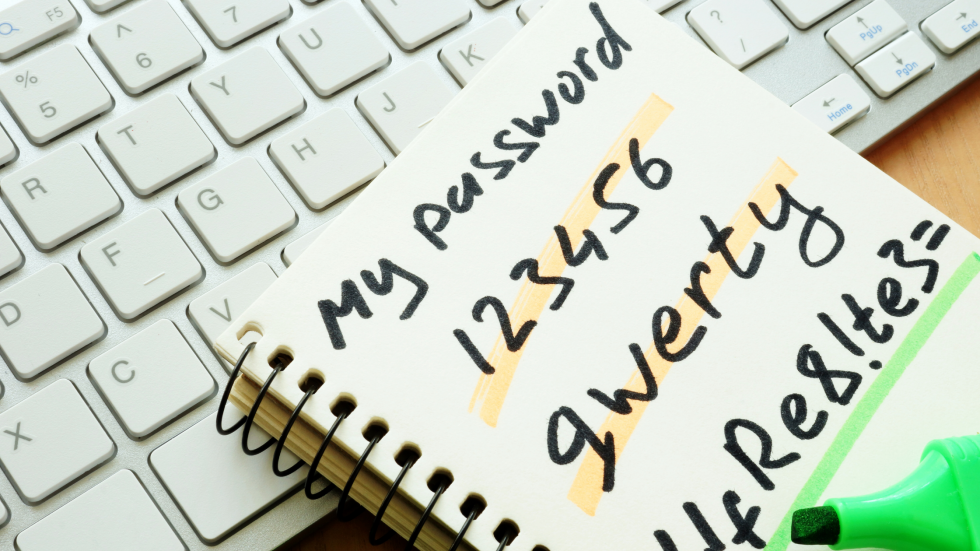 My password
123456
qwerty
fRe8!te3=
F5
^
6
7
U
K
?
/
PgUp
End
%
5
Y
J
PgDn
Home
R
T
H
G
D
F
V
C
X